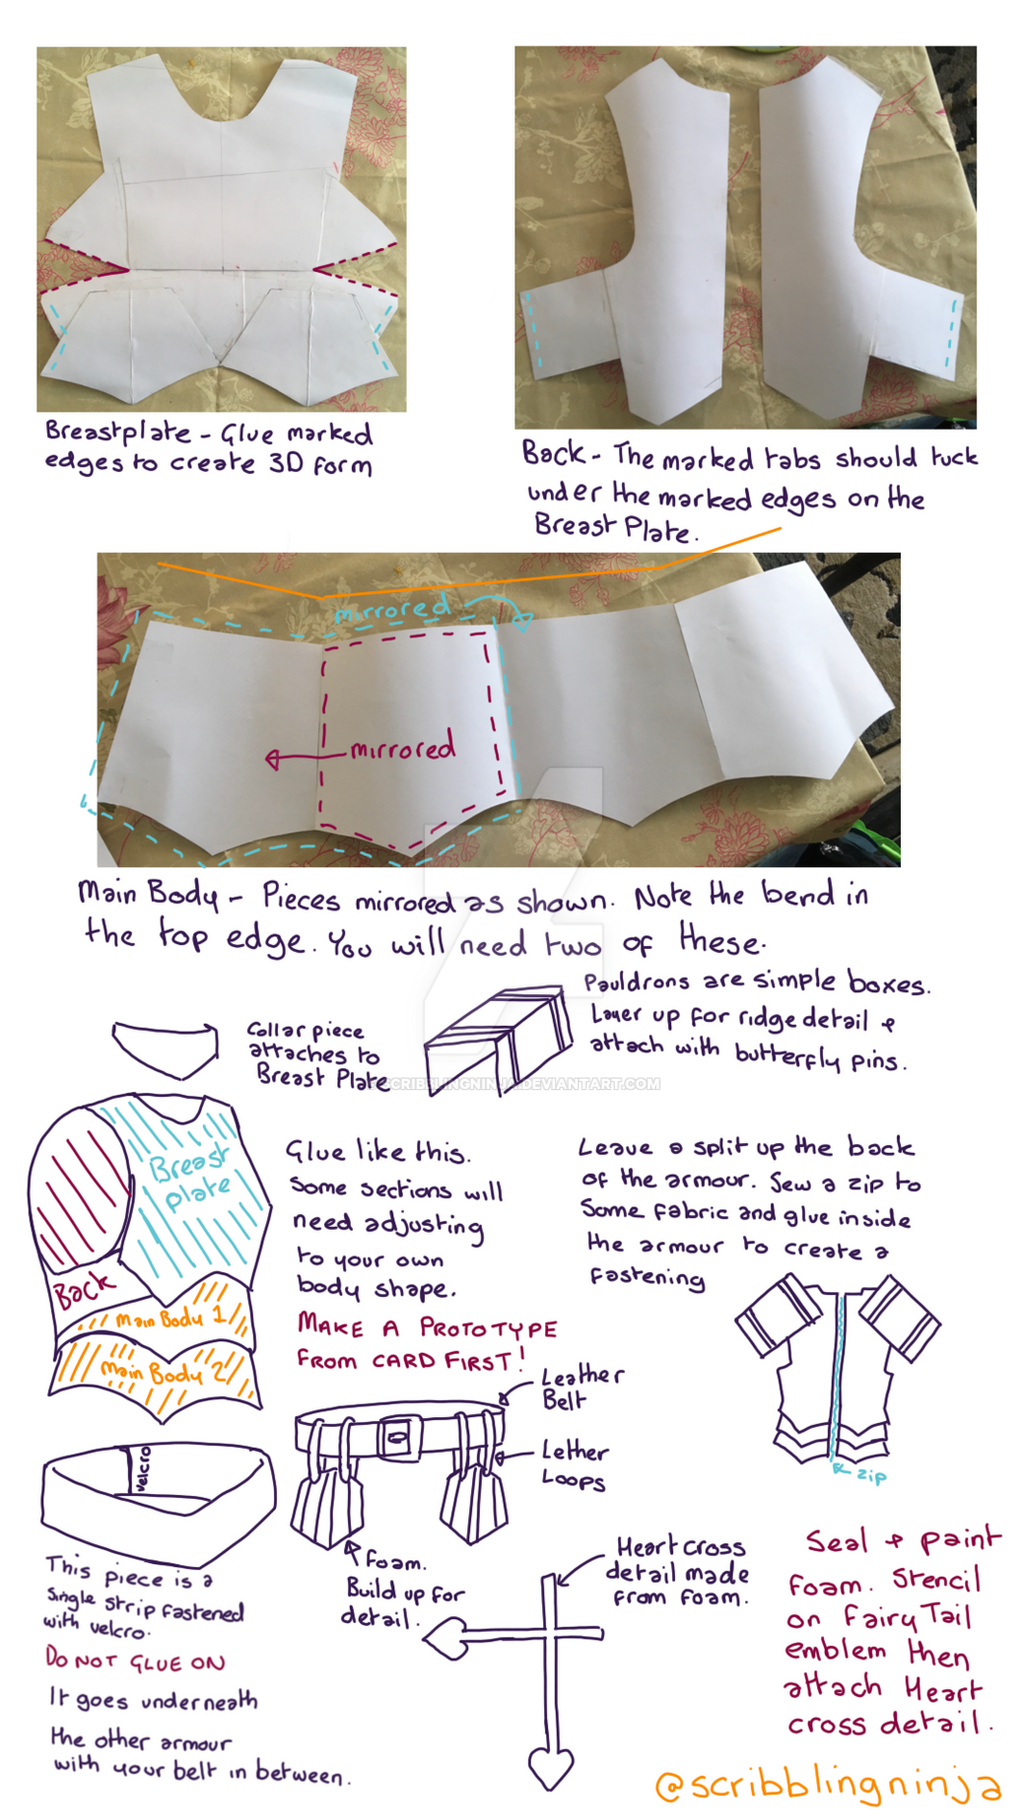 Breastplate - Glue marked
edges to create 3D form
Back - The marked tabs should tuck
under the marked edges on the
Breast Plate.
mirrored
mirrored
Main Body - Pieces mirrored as shown. Note the bend in
the top edge. You will need two of these.
Pauldrons are simple boxes.
Layer up for ridge detail +
attach with butterfly pins.
Collar piece
attaches to
Breast Plate
SCRIBBLINGNINJA.DEVIANTART.COM
Breast
plate
Back
Main Body 1
Main Body 2
Glue like this.
Some sections will
need adjusting
to your own
body shape.
MAKE A PROTOTYPE
FROM CARD FIRST!
Leave a split up the back
of the armour. Sew a zip to
some fabric and glue inside
the armour to create a
fastening
zip
Leather
Belt
Lether
Loops
foam.
Build up for
detail.
velcro
This piece is a
single strip fastened
with velcro.
DO NOT GLUE ON
It goes underneath
the other armour
with your belt in between.
Heart cross
detail made
from foam.
Seal + paint
foam. Stencil
on Fairy Tail
emblem then
attach Heart
cross detail.
@scribblingninja